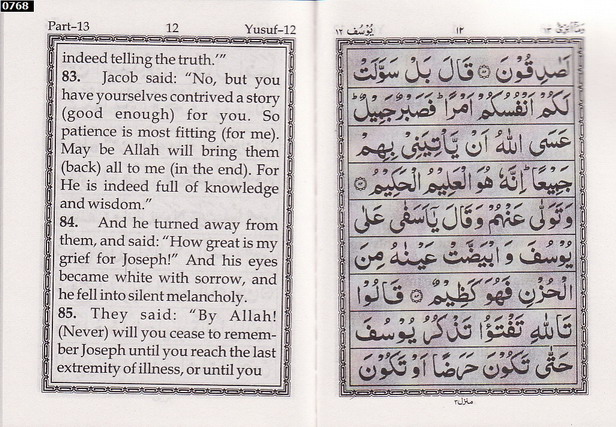 0768
Part–13 12 Yusuf–12
indeed telling the truth.’”
83. Jacob said: “No, but you
have yourselves contrived a story
(good enough) for you. So
patience is most fitting (for me).
May be Allah will bring them
(back) all to me (in the end). For
He is indeed full of knowledge
and wisdom.”
84. And he turned away from
them, and said: “How great is my
grief for Joseph!” And his eyes
became white with sorrow, and
he fell into silent melancholy.
85. They said: “By Allah!
(Never) will you cease to remem-
ber Joseph until you reach the last
extremity of illness, or until you
يُوْسُف ١٢ ١٢ ١٣
لَصٰدِقُوْنَ ۝ قَالَ بَلْ سَوَّلَتْ
لَكُمْ اَنْفُسُكُمْ اَمْرًا ؕ فَصَبْرٌ جَمِيْلٌ ؕ
عَسَى اللّٰهُ اَنْ يَّاْتِيَنِيْ بِهِمْ
جَمِيْعًا ؕ اِنَّهٗ هُوَ الْعَلِيْمُ الْحَكِيْمُ ۝
وَتَوَلّٰى عَنْهُمْ وَقَالَ يٰۤاَسَفٰى عَلٰى
يُوْسُفَ وَابْيَضَّتْ عَيْنٰهُ مِنَ
الْحُزْنِ فَهُوَ كَظِيْمٌ ۝ قَالُوْا
تَاللّٰهِ تَفْتَؤُا تَذْكُرُ يُوْسُفَ
حَتّٰى تَكُوْنَ حَرَضًا اَوْ تَكُوْنَ
منزل ٣